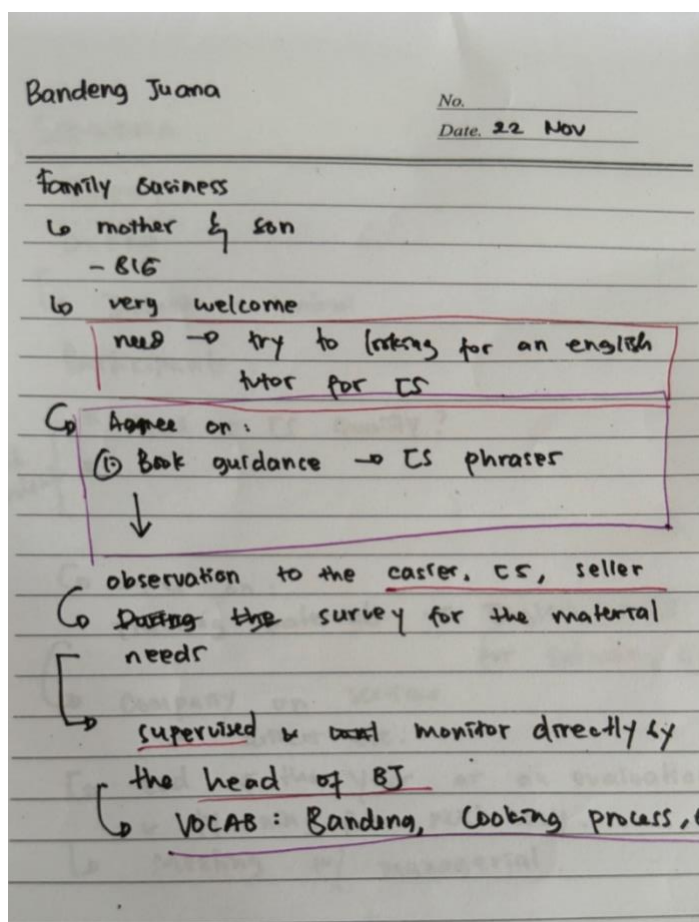 Bandeng Juana
No.
Date. 22 Nov
Family Business
↳ mother & son
- BIG
↳ very welcome
need → try to looking for an english
tutor for CS
↳ Agree on :
① Book guidance → CS phrases
↓
observation to the casier, CS, seller
↳ During the survey for the material
needs
↳ supervised & monitor directly by
the head of BJ
↳ VOCAB : Bandeng, Cooking process,